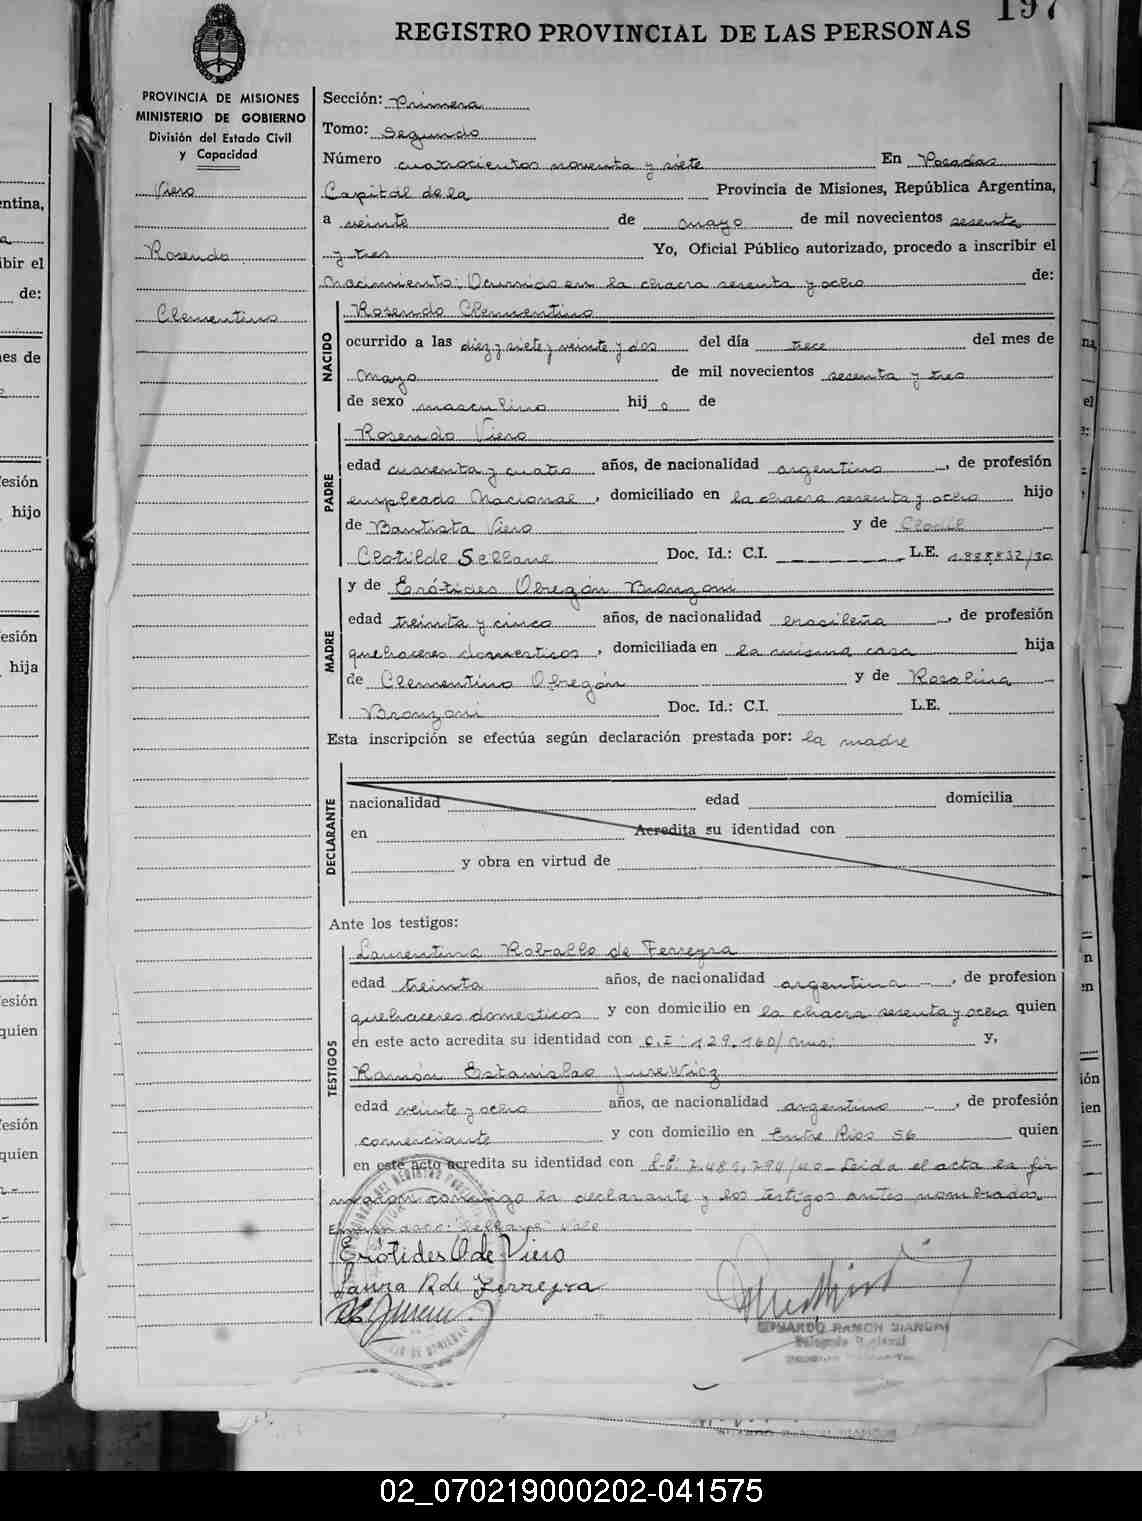 197
REGISTRO PROVINCIAL DE LAS PERSONAS
PROVINCIA DE MISIONES
MINISTERIO DE GOBIERNO
División del Estado Civil
y Capacidad
Viero
Rosendo
Clementino
Sección: Primera
Tomo: Segundo
Número cuatrocientos noventa y siete En Posadas
Capital de la Provincia de Misiones, República Argentina,
a veinte de mayo de mil novecientos sesenta
y tres Yo, Oficial Público autorizado, procedo a inscribir el
Nacimiento: Ocurrido en la chacra sesenta y ocho de:
NACIDO
Rosendo Clementino
ocurrido a las diez y siete y veinte y dos del día trece del mes de
mayo de mil novecientos sesenta y tres
de sexo masculino hijo de
PADRE
Rosendo Viero
edad cuarenta y cuatro años, de nacionalidad argentino, de profesión
empleado Nacional, domiciliado en la chacra sesenta y ocho hijo
de Bautista Viero y de
Clotilde Sellane Doc. Id.: C.I. L.E. 1.888.832/30
MADRE
y de Erótides Obregón Bronzoni
edad treinta y cinco años, de nacionalidad brasileña, de profesión
quehaceres domesticos, domiciliada en la misma casa hija
de Clementino Obregón y de Rosalina
Bronzoni Doc. Id.: C.I. L.E.
Esta inscripción se efectúa según declaración prestada por: la madre
DECLARANTE
nacionalidad edad domicilia
en Acredita su identidad con
y obra en virtud de
Ante los testigos:
TESTIGOS
Laurentina Roballo de Ferreyra
edad treinta años, de nacionalidad argentina, de profesion
quehaceres domesticos y con domicilio en la chacra sesenta y ocho quien
en este acto acredita su identidad con C.I: 129.160/mns: y,
Ramón Estanislao Jurewicz
edad veinte y ocho años, de nacionalidad argentino, de profesión
comerciante y con domicilio en Entre Rios 56 quien
en este acto acredita su identidad con L.E: 7.481.294/40 - Leida el acta la fir
maron conmigo la declarante y los testigos antes nombrados.
Enmendado: Sellane Vale
Erótides O. de Viero
Laura R de Ferreyra
EDUARDO RAMON
02_070219000202-041575